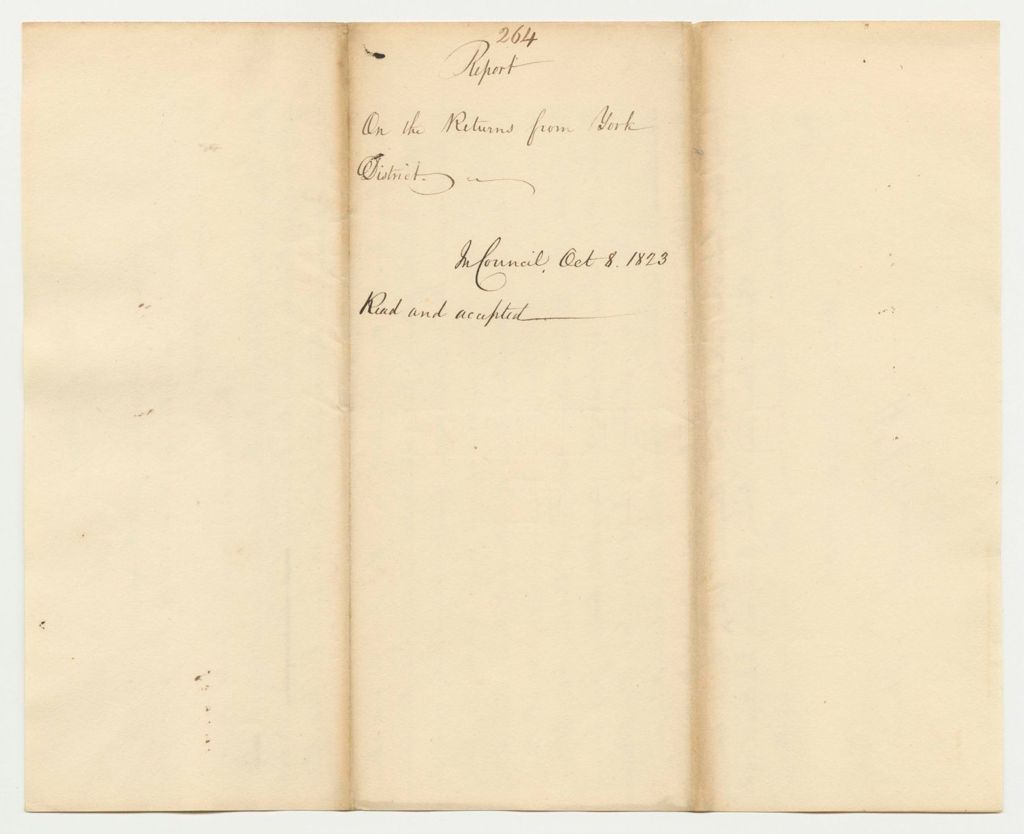 264
Report
On the Returns from York
District.
In Council, Oct 8. 1823
Read and accepted